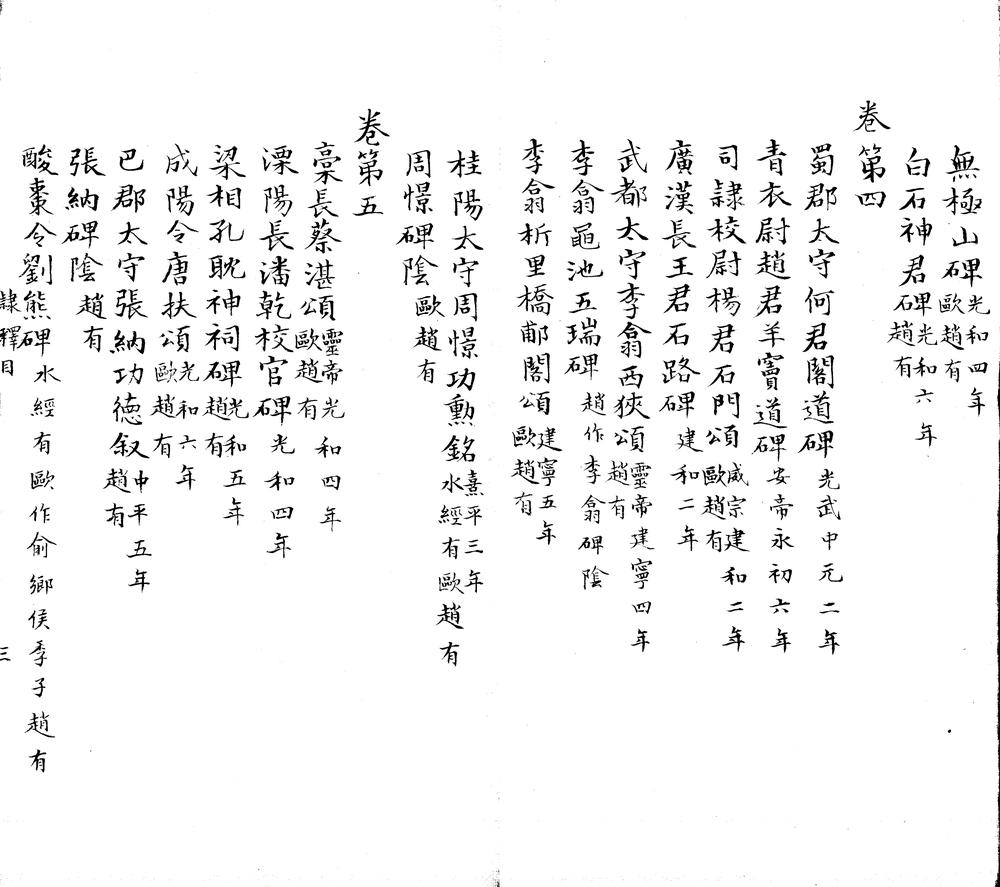 無極山碑光和四年歐趙有
白石神君碑光和六年石趙有
卷第四
蜀郡太守何君閣道碑光武中元二年
青衣尉趙君羊竇道碑安帝永初六年
司隷校尉楊君石門頌威宗建和二年歐趙有
廣漢長王君石路碑建和二年
武都太守李翕西狹頌靈帝建寧四年趙有
李翕黽池五瑞碑趙作李翕碑陰
李翕析里橋郙閣頌建寧五年歐趙有
桂陽太守周憬功勲銘熹平三年水經有歐趙有
周憬碑陰歐趙有
卷第五
稾長蔡湛頌靈帝光和四年歐趙有
溧陽長潘乾校官碑光和四年
梁相孔耽神祠碑光和五年趙有
成陽令唐扶頌光和六年歐趙有
巴郡太守張納功德叙中平五年趙有
張納碑陰趙有
酸棗令劉熊碑水經有歐作俞鄉侯季子趙有
隷釋目
三